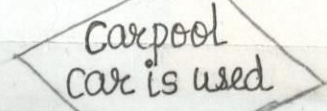 Carpool
car is used